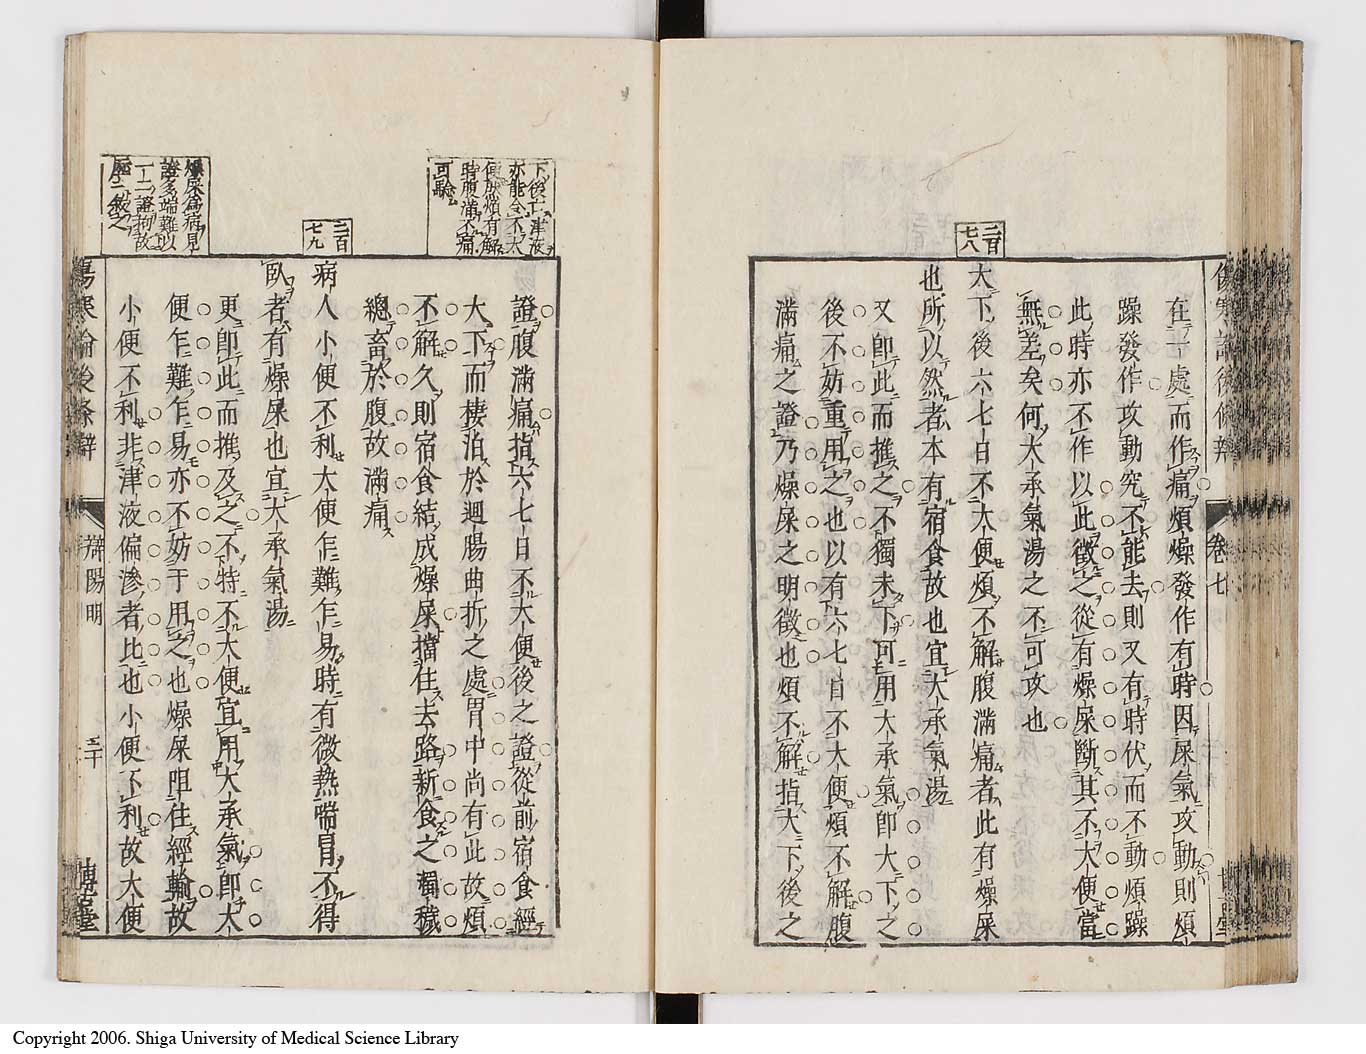 傷寒論後條辨
卷七
二百七八
在一處而作痛煩燥發作有時因屎氣攻動則煩
躁發作攻動究不能去則又有時伏而不動煩躁
此時亦不作以此徵之從有燥屎斷其不大便當
無差矣何大承氣湯之不可攻也
大下後六七日不大便煩不解腹滿痛者此有燥屎
也所以然者本有宿食故也宜大承氣湯
又即此而推之不獨未下可用大承氣即大下之
後不妨重用之也以有六七日不大便煩不解腹
滿痛之證乃燥屎之明徵也煩不解指大下後之
下後亡津液
亦能令不大
便然煩有解
時腹滿不痛
可驗
二百七九
燥屎爲病見
證多端難以
一二證拘故
歷歷敘之
證腹滿痛指六七日不大便後之證從前宿食經
大下而棲泊於迴腸曲折之處胃中尚有此故煩
不解久則宿食結成燥屎擋住去路新食之濁穢
總畜於腹故滿痛
病人小便不利大便乍難乍易時有微熱喘冒不得
臥者有燥屎也宜大承氣湯
更即此而推及之不特不大便宜用大承氣即大
便乍難乍易亦不妨于用之也燥屎阻住經輸故
小便不利非津液偏滲者比也小便不利故大便
傷寒論後條辯
辯陽明
三十
博古堂
Copyright 2006. Shiga University of Medical Science Library